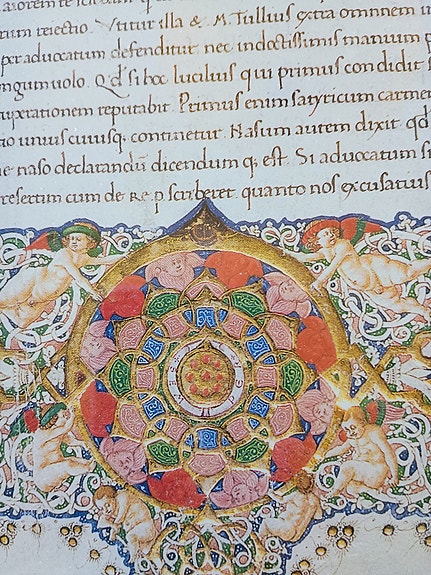 aiorem te
rum reiectio. Vtitur illa & M. Tullius extra omnem in
per aduocatum defenditur. nec indoctissimis manium p
ngum uolo. Qd si hoc lucilius qui primus condidit s
reputabit. Primus enim satyricum carme
tio unius cuiusq; continetur. Nasum autem dixit. qd
e naso declarandū dicendum q; est. Si aduocatum si
resertim cum de RE.P scriberet. quanto nos excusatius